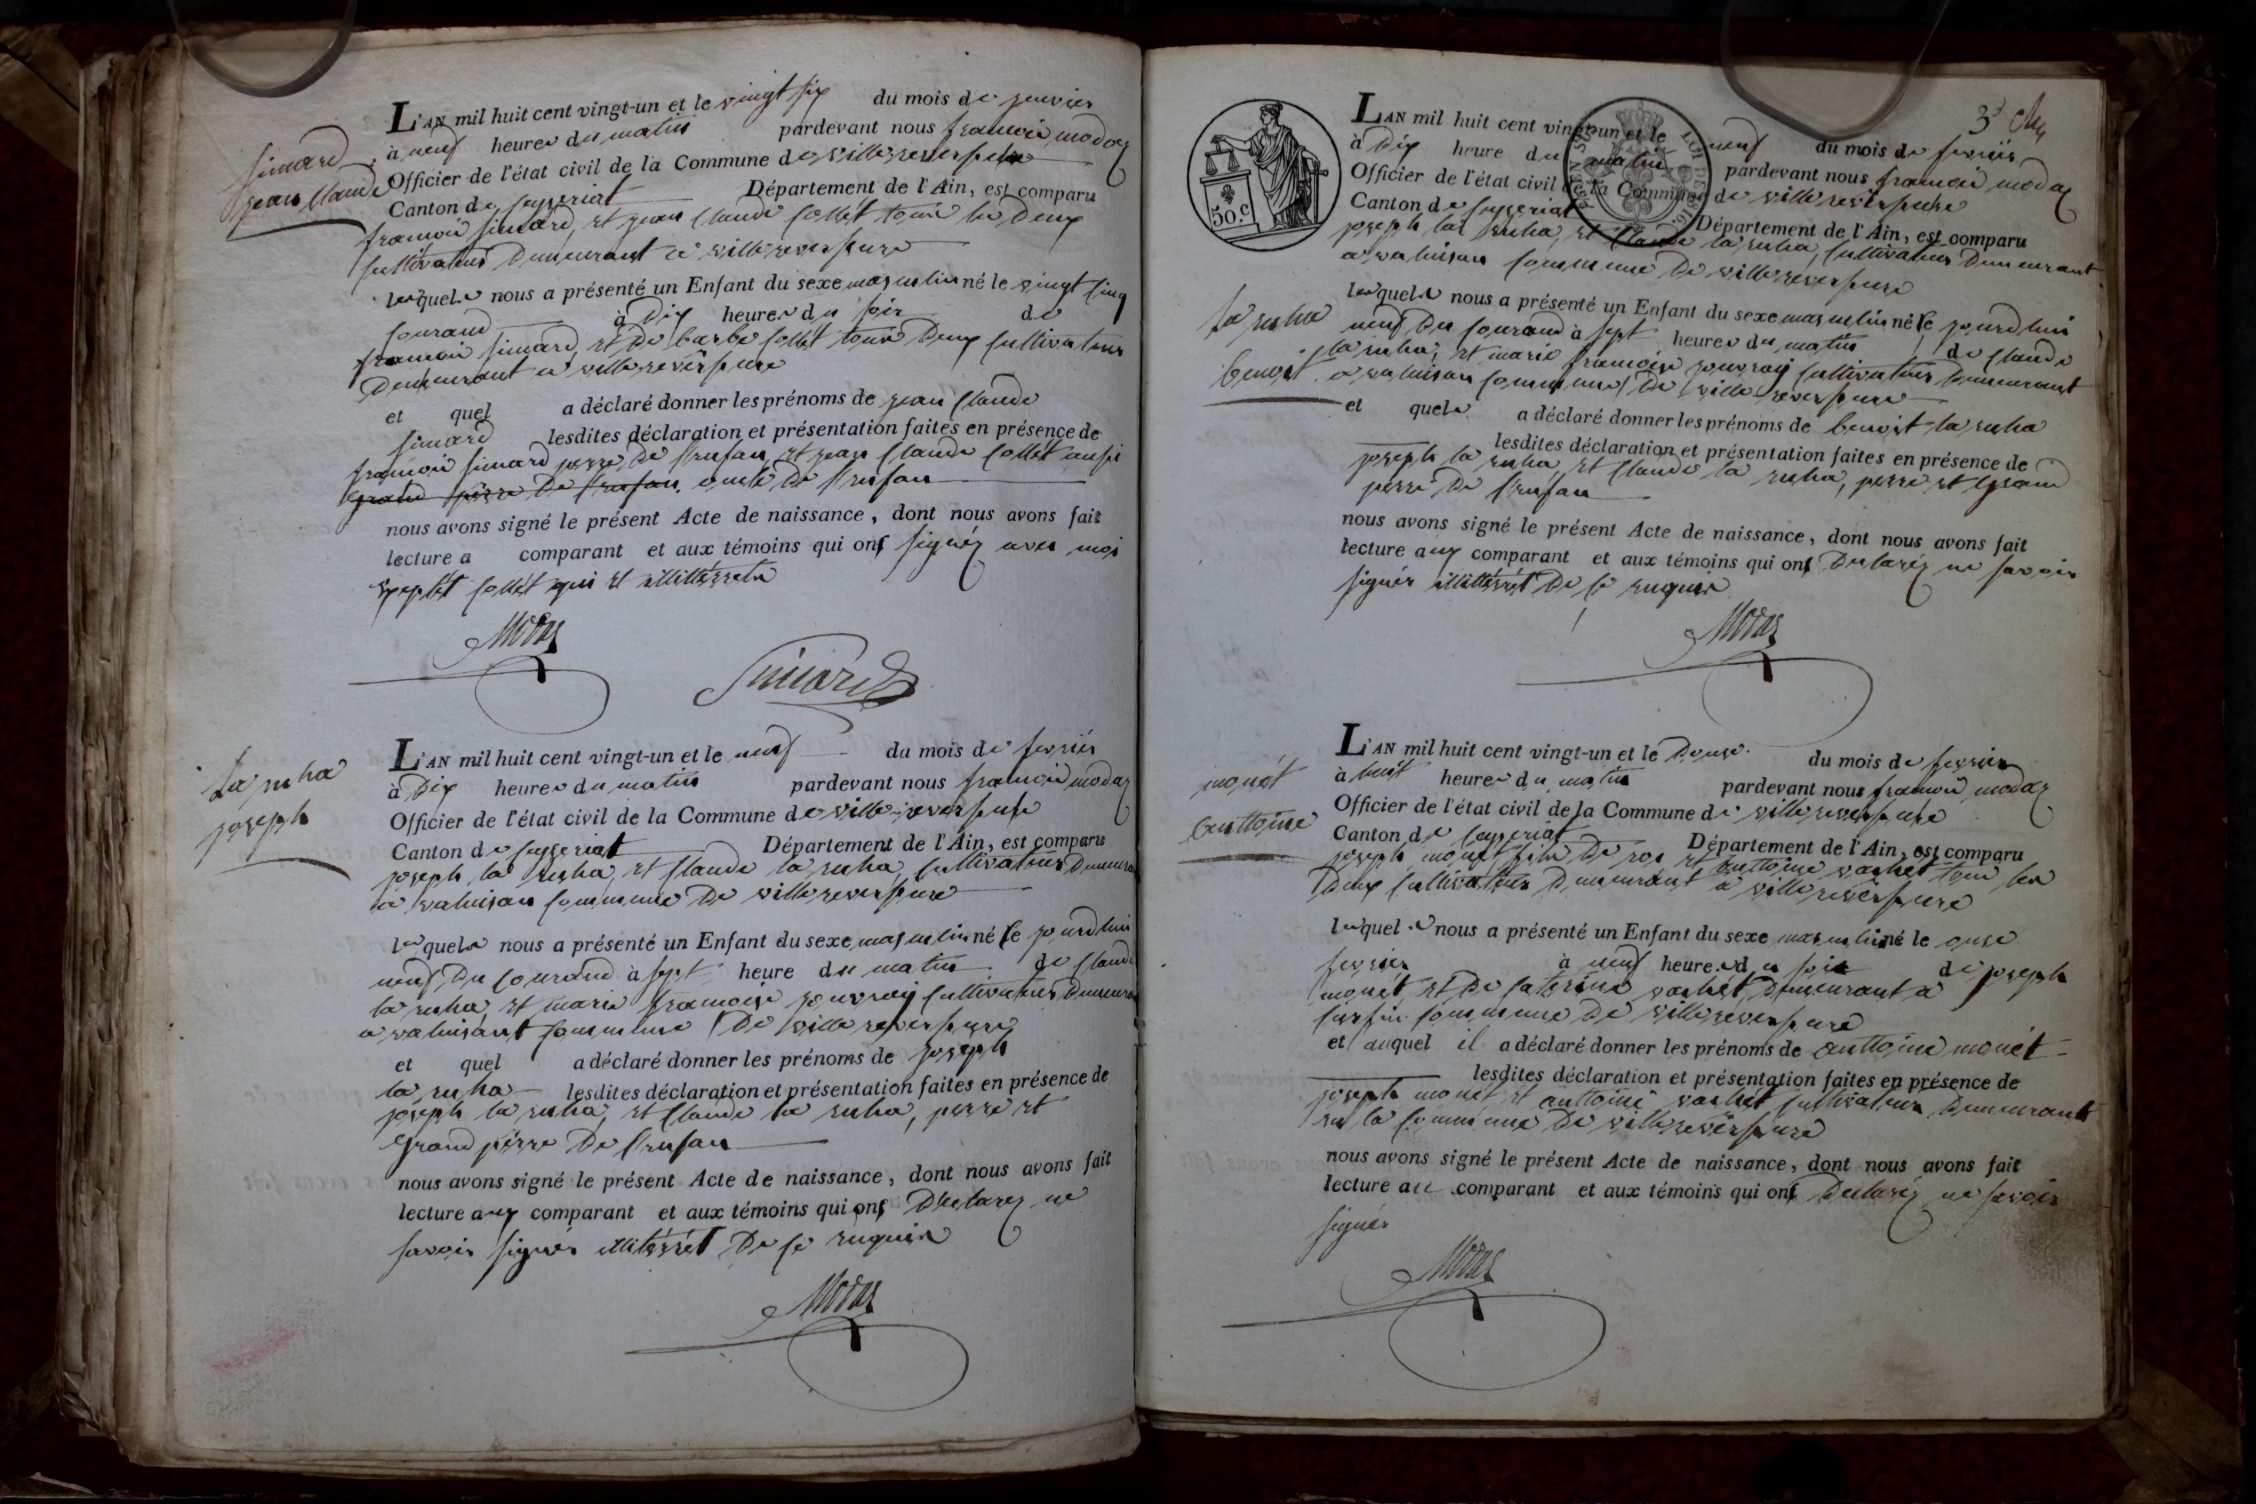 Simard
jean Claude
L'AN mil huit cent vingt-un et le vingt six du mois de janvier
à neuf heures du matin pardevant nous francois modas
Officier de l'état civil de la Commune de villereversure
Canton de Ceyzeriat Département de l'Ain, est comparu
francois simard, et jean Claude Collet tous les deux
cultivateurs demeurant a villereversure
lesquels nous a présenté un Enfant du sexe masculin né le vingt cinq
courand à dix heures du soir de
francois simard, et de barbe Collet tous deux cultivateurs
demeurant a villereversure
et quel a déclaré donner les prénoms de jean Claude
simard lesdites déclaration et présentation faites en présence de
francois simard perre de l'enfan et jean Claude Collet aussi
grand perre de l'enfan. oncle de l'enfan
nous avons signé le présent Acte de naissance, dont nous avons fait
lecture a comparant et aux témoins qui ont signéz avec moi
exeptét Collet qui et illitterrets
Modas
Simard
La ruha
joseph
L'AN mil huit cent vingt-un et le neuf du mois de fevrier
à dix heures du matin pardevant nous francois modas
Officier de l'état civil de la Commune de villereversure
Canton de Ceyzeriat Département de l'Ain, est comparu
joseph la ruha, et Claude la ruha, cultivateurs demeurant
a valuisan commune de villereversure
lesquels nous a présenté un Enfant du sexe masculin né le jourdhui
neuf du courand à sept heure du matin de Claude
la ruha, et marie francoise jouvray cultivateurs demeurant
a valuisant commune de villereversure
et quel a déclaré donner les prénoms de joseph
la ruha lesdites déclaration et présentation faites en présence de
joseph la ruha, et Claude la ruha, perre et
grand perre de l'enfan
nous avons signé le présent Acte de naissance, dont nous avons fait
lecture aux comparant et aux témoins qui ont declarez ne
savoir signér illiterrét de ce requis
Modas
3e
50.c
L'AN mil huit cent vingt-un et le neuf du mois de fevrier
à dix heure du matin pardevant nous francois modas
Officier de l'état civil de la Commune de villereversure
Canton de Ceyzeriat Département de l'Ain, est comparu
joseph la ruha, et Claude la ruha, cultivateurs demeurant
a valuisan commune de villereversure
La ruha
benoit
lesquels nous a présenté un Enfant du sexe masculin né le jourdhui
neuf du courand à sept heures du matin de Claude
la ruha, et marie francoise jouvray cultivateurs demeurant
a valuisan commune de villereversure
et quels a déclaré donner les prénoms de benoit la ruha
lesdites déclaration et présentation faites en présence de
joseph la ruha, et Claude la ruha, perre et grand
perre de l'enfan
nous avons signé le présent Acte de naissance, dont nous avons fait
lecture aux comparant et aux témoins qui ont declaréz ne savoir
signér illitterrét de ce requis
Modas
monét
anttoine
L'AN mil huit cent vingt-un et le douse du mois de fevrier
à huit heures du matin pardevant nous francois modas
Officier de l'état civil de la Commune de villereversure
Canton de Ceyzeriat Département de l'Ain, est comparu
joseph monet fils de et anttoine vachet tous les
deux cultivateurs demeurant a villereversure
lesquels nous a présenté un Enfant du sexe masculin né le onse
fevrier à neuf heures du soir de joseph
monét, et de caterine vachét, demeurant a
commune de villereversure
et auquel il a déclaré donner les prénoms de anttoine monét
lesdites déclaration et présentation faites en présence de
joseph monet et anttoine vachet cultivateurs demeurants
en la commune de villereversure
nous avons signé le présent Acte de naissance, dont nous avons fait
lecture au comparant et aux témoins qui ont declaréz ne savoir
signér
Modas